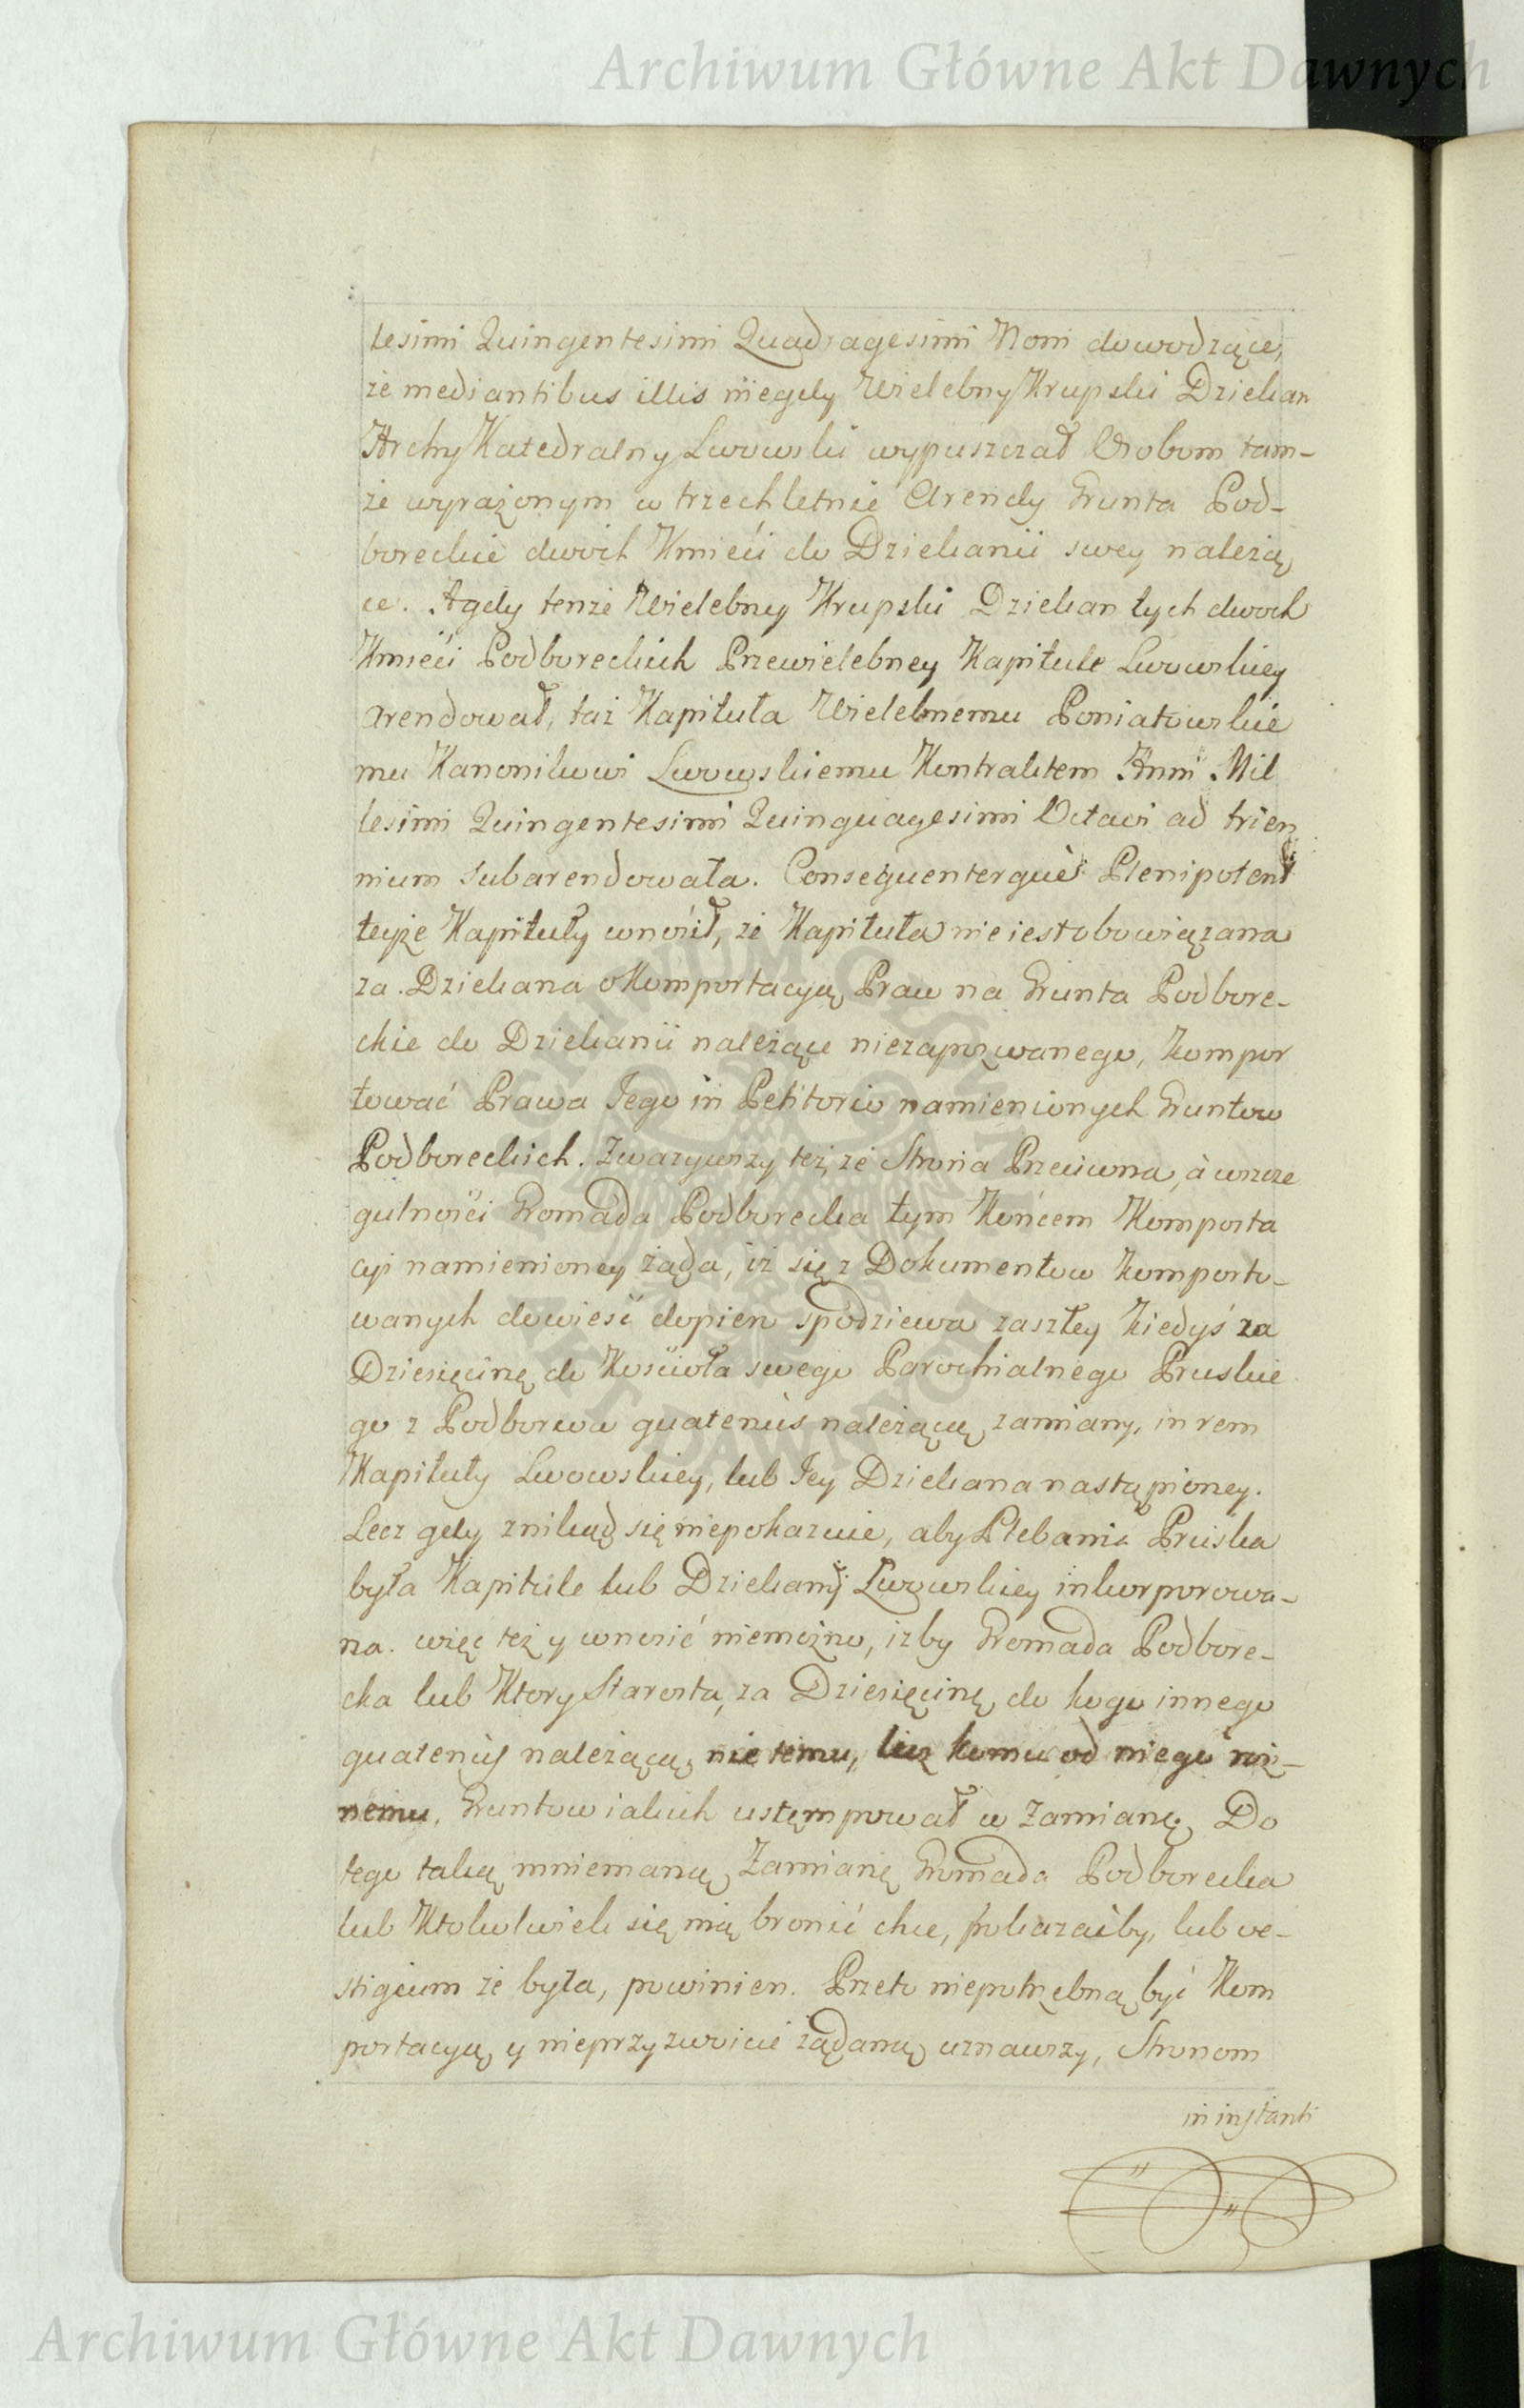 Archiwum Główne Akt Dawnych
lesimi Quingentesimi Quadragesimi Noni dowodzące,
że mediantibus illis niegdy Wielebny Krupski Dziekan
Archy Katedralny Lwowski wypuszczał Osobom tam-
że wyrażonym w trzechletnie Arendy Grunta Pod-
boreckie dwoch Kmieći do Dziekanii swey należą
ce. A gdy tenże Wielebny Krupski Dziekan tych dwoch
Kmieći Podboreckich Przewielebney Kapitule Lwowskiey
arendował, taż Kapituła Wielebnemu Poniatowskie
mu Kanonikowi Lwowskiemu Kontraktem Anni Mil
lesimi Quingentesimi Quinquagesimi Octavi ad trien
nium subarendowała. Consequenterque Plenipotent
teyże Kapituły wnosił, że Kapituła nie iest obowiązana
za Dziekana o Komportacyą Praw na Grunta Podbore-
ckie do Dziekanii należące niezapozwanego, kompor
tować Prawa Jego in Petitorio namienionych Gruntow
Podboreckich. Zważywszy też, że Strona Przeciwna, à wszcze
gulności Gromada Podborecka tym Końcem Komporta
cyi namienioney żąda, iż się z Dokumentow komporto-
wanych dowieść dopiero spodziewa zaszłey kiedyś za
Dziesięcinę do Kościoła swego Parochialnego Pruskie
go z Podborow quatenus należącą zamiany, in rem
Kapituły Lwowskiey, lub Jey Dziekana nastąpioney.
Lecz gdy znikąd się niepokazuie, aby Plebania Pruska
była Kapitule lub Dziekanij Lwowskiey inkorporowa-
na. więc też y wnosić niemożno, iżby Gromada Podbore-
cka lub Ktory Starosta, za Dziesięcinę do kogo innego
quatenus należącą, nie temu, lecz komu od niego roż-
nemu, Gruntow iakich ustępował w zamianę. Do
tego taką mniemaną Zamianę Gromada Podborecka
lub Ktokolwiek się nią bronić chce, pokazaćby, lub ve-
stigium że była, powinien. Przeto niepotrzebną być Kom
portacyą y nieprzyzwoicie żądaną uznawszy, Stronom
in instanti
Archiwum Główne Akt Dawnych